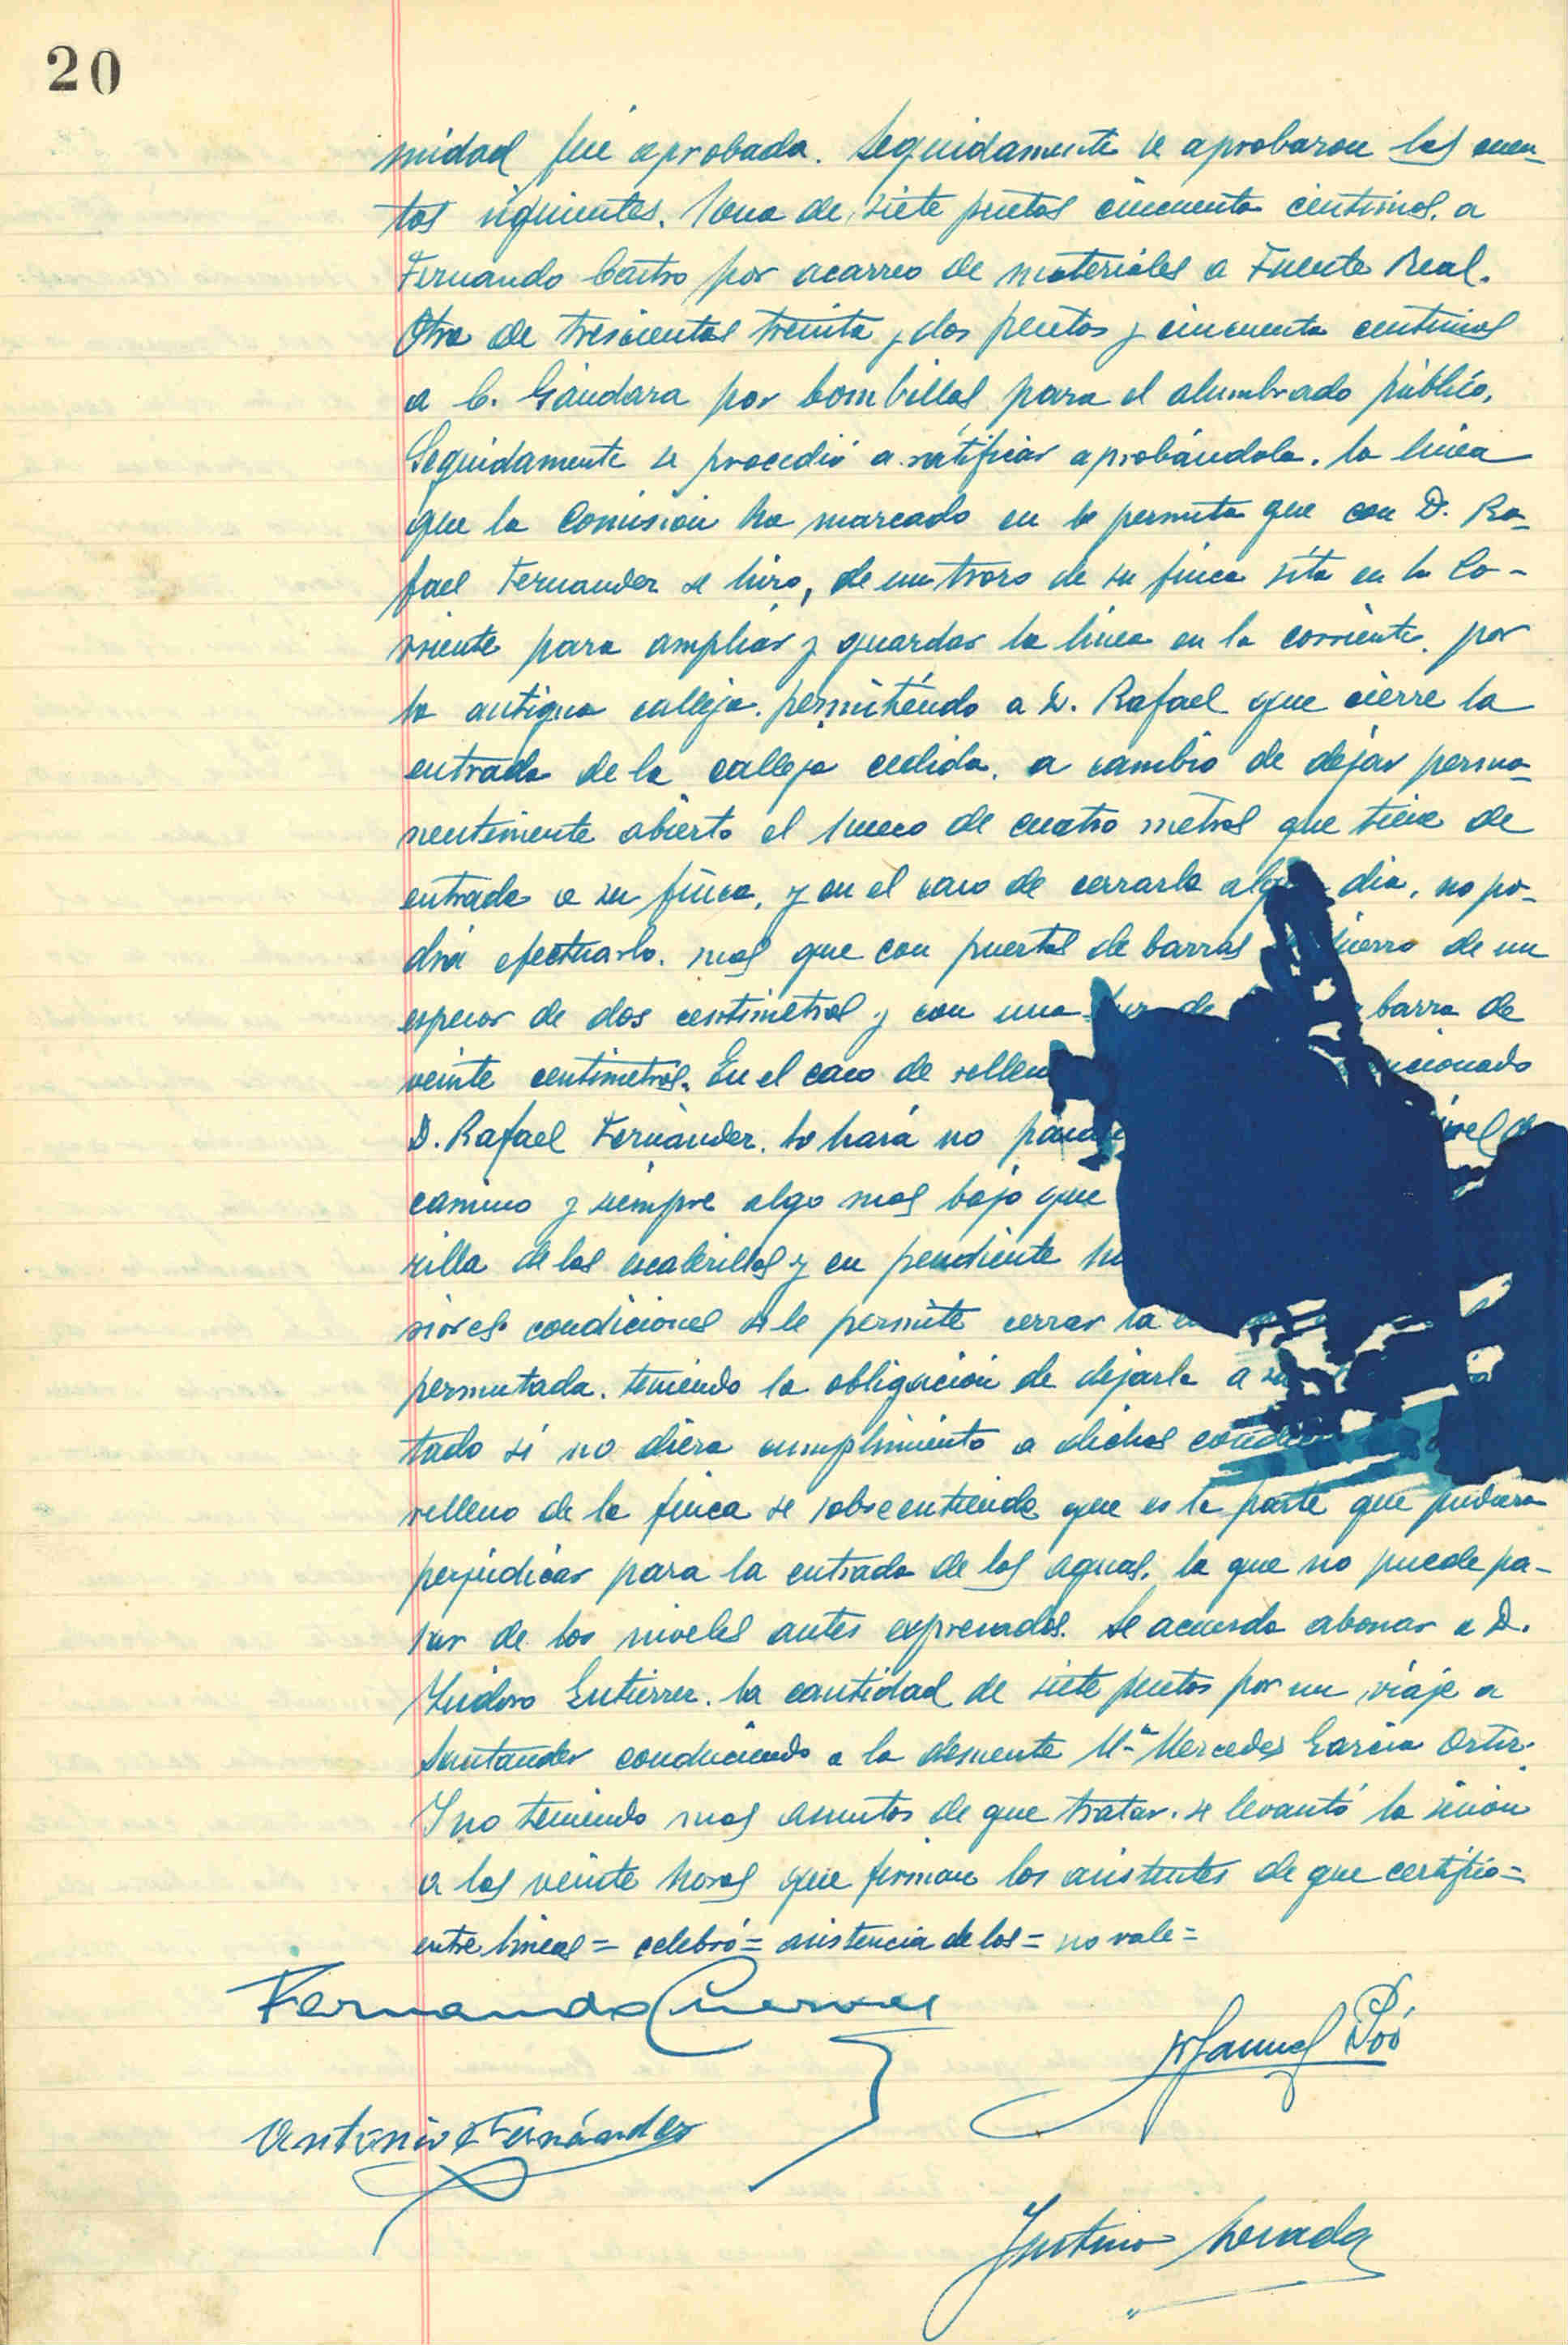 20
midad fué aprobada. Seguidamente se aprobaron las cuen-
tas siguientes. Una de siete pesetas cincuenta centimos. a
Fernando Castro por acarreo de materiales a Fuente Real.
Otra de trescientas treinta y dos pesetas y cincuenta centimos
a C. Gándara por bombillas para el alumbrado público.
Seguidamente se procedió a ratificar aprobándola. la linea
que la Comisión ha marcado en la permuta que con D. Ra-
fael Fernandez se hizo, de un trozo de su finca sita en la Co-
rriente para ampliar y guardar la linea en la corriente. por
la antigua calleja. permitiéndo a D. Rafael que cierre la
entrada de la calleja cedida. a cambio de dejar perma-
nentemente abierto el hueco de cuatro metros que tiene de
entrada a su finca, y en el caso de cerrarla dia, no po-
drá efectuarlo. mas que con puertas de barras hierro de un
espesor de dos centimetros y con una de barra de
veinte centimetros. En el caso de rellen cionado
D. Rafael Fernández. lo hará no vel
camino y siempre algo mas bajo que
rilla de las escalerillas y en pendiente
riores condiciones se le permite cerrar la
permutada. teniendo la obligación de dejarla a su
tado si no diera cumplimiento a dichas
relleno de la finca se sobreentiende que es la parte que pudiera
perjudicar para la entrada de las aguas. la que no puede pa-
sar de los niveles antes expresados. Se acuerda abonar a D.
Isidoro Gutierrez. la cantidad de siete pesetas por un viaje a
Santander conduciendo a la demente Mª Mercedes Garcia Ortiz.
Y no teniendo mas asuntos de que tratar. se levantó la sesion
a las veinte horas que firman los asistentes de que certifico=
entre lineas = celebró = asistencia de los = no vale =
Fernando Cuevas
Manuel Póo
Antonio Fernández
Justino Losada